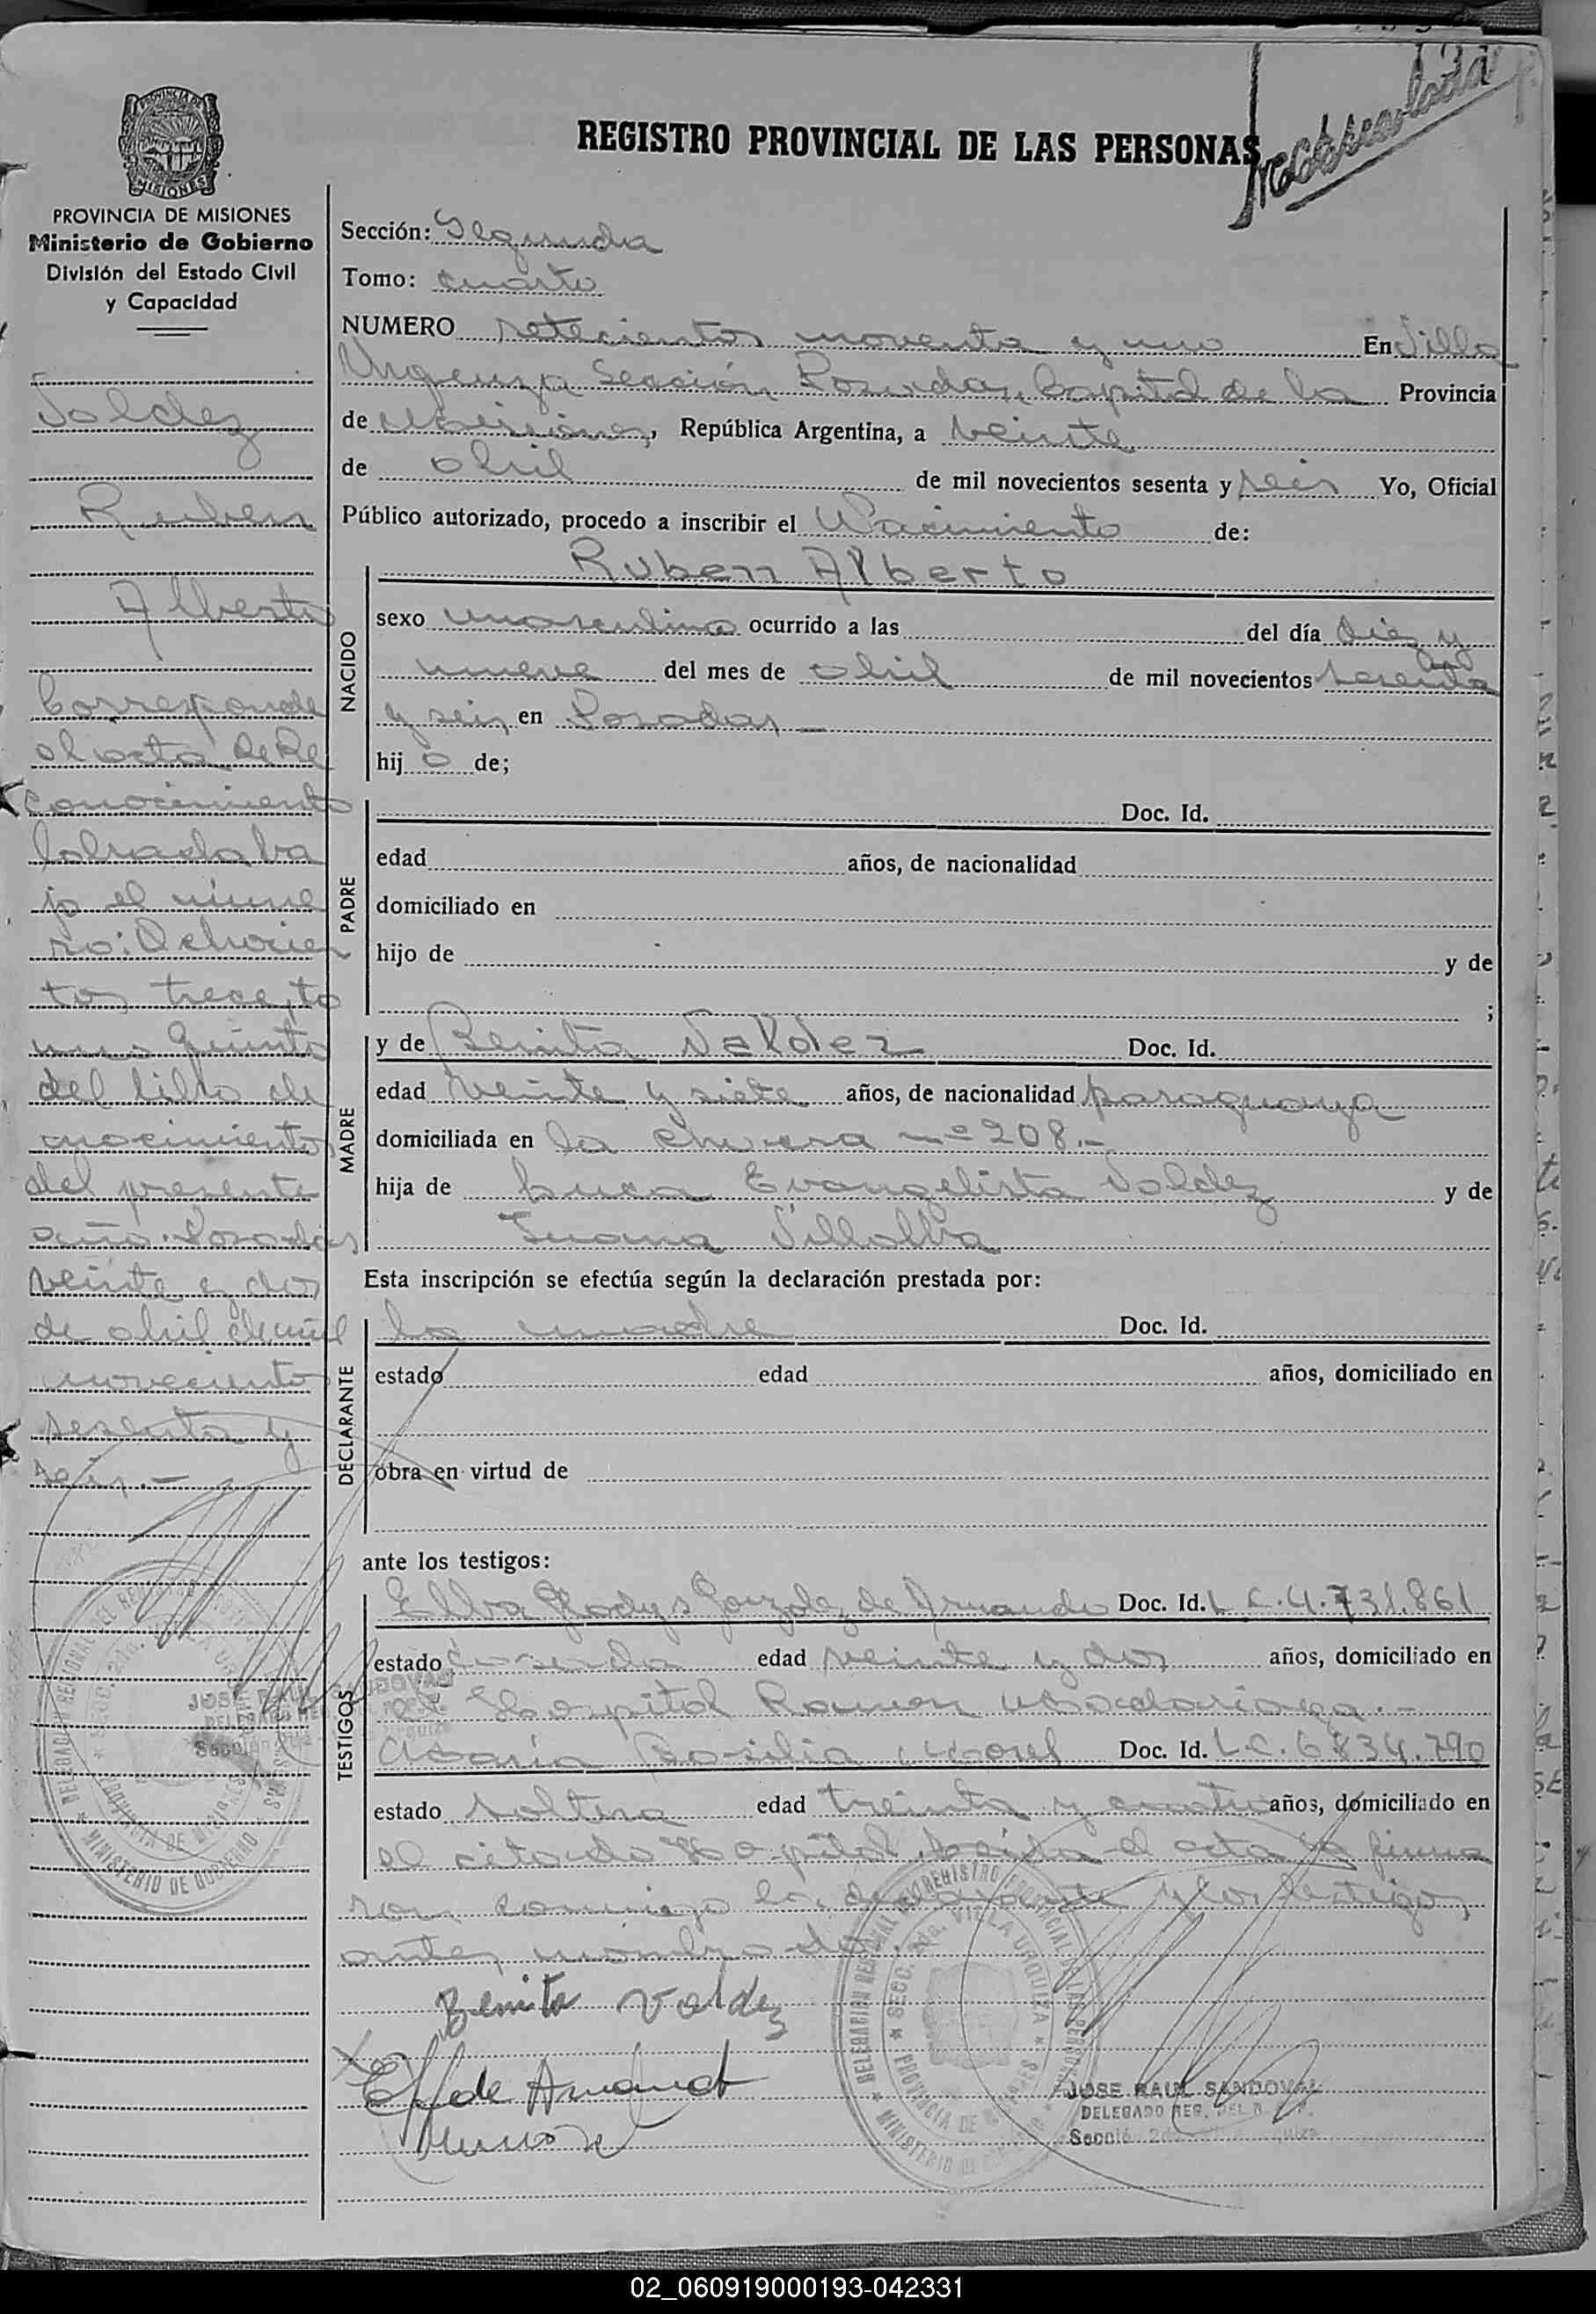 REGISTRO PROVINCIAL DE LAS PERSONAS
PROVINCIA DE MISIONES
Ministerio de Gobierno
División del Estado Civil
y Capacidad
Valdez
Ruben
Alberto
Corresponde
al acta de Re
conocimiento
labrada ba
jo el núme
ro: Ochocien
tos trece, to
mo quinto
del libro de
nacimientos
del presente
año. Posadas
veinte y dos
de abril de mil
novecientos
sesenta y
seis.-
Sección: Segunda
Tomo: cuarto
NUMERO setecientos noventa y uno En Villa
Urquiza Sección Posadas, Capital de la Provincia
de Misiones, República Argentina, a veinte
de abril de mil novecientos sesenta y seis Yo, Oficial
Público autorizado, procedo a inscribir el Nacimiento de:
Ruben Alberto
NACIDO
sexo masculino ocurrido a las del día diez y
nueve del mes de abril de mil novecientos sesenta
y seis en Posadas
hij o de;
PADRE
Doc. Id.
edad años, de nacionalidad
domiciliado en
hijo de y de
;
MADRE
y de Benita Valdez Doc. Id.
edad veinte y siete años, de nacionalidad paraguaya
domiciliada en la chacra nº 208.-
hija de Luca Evangelista Valdez y de
Juana Villalba
Esta inscripción se efectúa según la declaración prestada por:
DECLARANTE
la madre Doc. Id.
estado edad años, domiciliado en
obra en virtud de
ante los testigos:
TESTIGOS
Elba Gladys González de Armando Doc. Id. L.C. 4.731.861
estado casada edad veinte y dos años, domiciliado en
el Hospital Ramon Madariaga.-
Maria Basilia Morel Doc. Id. L.C. 6834.790
estado soltera edad treinta y cuatro años, domiciliado en
el citado Hospital, leída el acta la firma
ron conmigo la declarante y los testigos
antes nombrados.
Benita Valdez
JOSE RAUL SANDOVAL
DELEGADO REG. DEL
Sección 2da
DELEGACION REGIONAL DEL REGISTRO PROVINCIAL DE LAS PERSONAS
SECC. 2da. VILLA URQUIZA
PROVINCIA DE MISIONES
MINISTERIO DE GOBIERNO
02_060919000193-042331